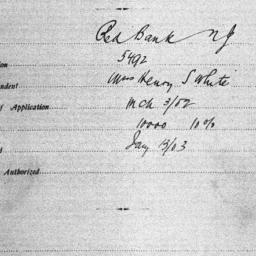 Red Bank NJ
5492
Miss Henry S White
ndent
f Application Mch 3/02
10000 10%
Jany 13/03
Authorized